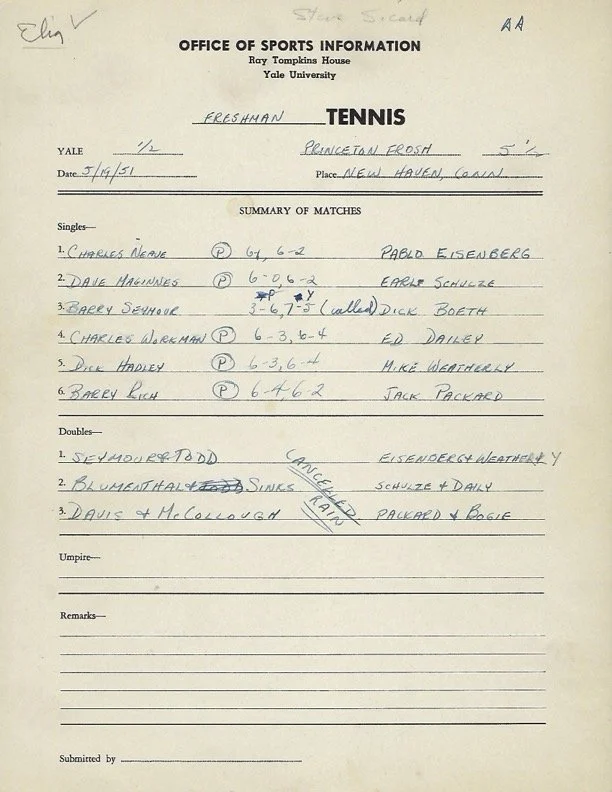 Elig ✓
Steve Sicard
AA
OFFICE OF SPORTS INFORMATION
Ray Tompkins House
Yale University
FRESHMAN TENNIS
YALE 1/2 PRINCETON FROSH 5 1/2
Date 5/19/51 Place NEW HAVEN, CONN
SUMMARY OF MATCHES
Singles—
1. CHARLES NEAVE (P) 6-1, 6-2 PABLO EISENBERG
2. DAVE MAGINNES (P) 6-0, 6-2 EARL SCHULZE
P Y
3. BARRY SEYMOUR 3-6, 7-5 (called) DICK BOETH
4. CHARLES WORKMAN (P) 6-3, 6-4 ED DAILEY
5. DICK HADLEY (P) 6-3, 6-4 MIKE WEATHERLY
6. BARRY RICH (P) 6-4, 6-2 JACK PACKARD
Doubles—
1. SEYMOUR & TODD EISENBERG & WEATHERLY
2. BLUMENTHAL & SINKS SCHULZE & DAILY
3. DAVIS & McCOLLOUGH PACKARD & BOGIE
CANCELLED
RAIN
Umpire—
Remarks—
Submitted by